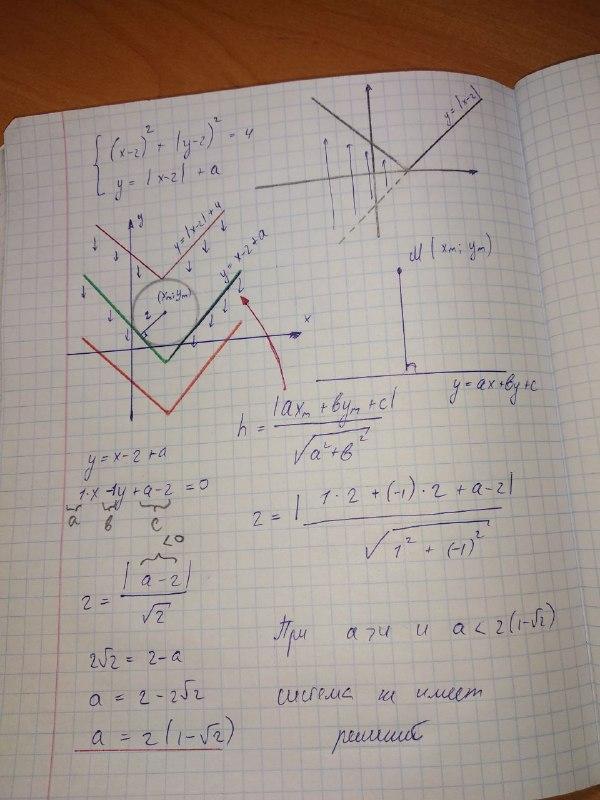 (x-2)² + (y-2)² = 4
y = |x-2| + a
y=|x-2|
y
y=|x-2|+4
y=x-2+a
(xм; yм)
2
x
M (xм; yм)
y=ax+вy+c
h = |axм + вyм + c| / √(a²+в²)
y = x-2+a
1·x -1y + a-2 = 0
a в c
<0
2 = |1·2 + (-1)·2 + a-2| / √(1² + (-1)²)
2 = |a-2| / √2
2√2 = 2-a
a = 2-2√2
a = 2(1-√2)
При a>4 и a<2(1-√2)
система не имеет
решений